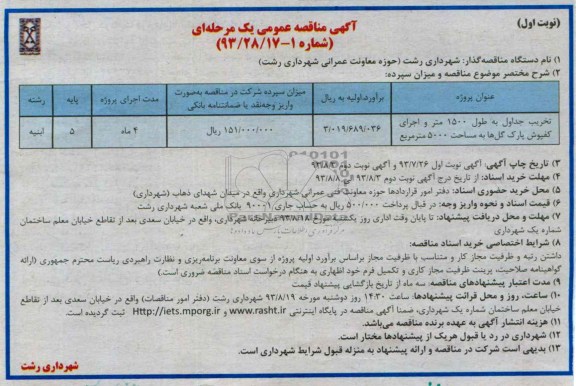 (نوبت اول)
آگهی مناقصه عمومی یک مرحله‌ای
(شماره ۱-۹۳/۲۸/۱۷)
۱) نام دستگاه مناقصه‌گذار: شهرداری رشت (حوزه معاونت عمرانی شهرداری رشت)
۲) شرح مختصر موضوع مناقصه و میزان سپرده:
عنوان پروژه
برآورداولیه به ریال
میزان سپرده شرکت در مناقصه به‌صورت واریز وجه‌نقد یا ضمانتنامه بانکی
مدت اجرای پروژه
پایه
رشته
تخریب جداول به طول ۱۵۰۰ متر و اجرای کفپوش پارک گل‌ها به مساحت ۵۰۰۰ مترمربع
۳/۰۱۹/۶۸۹/۰۳۶
۱۵۱/۰۰۰/۰۰۰ ریال
۴ ماه
۵
ابنیه
۳) تاریخ چاپ آگهی: آگهی نوبت اول ۹۳/۷/۲۶ و آگهی نوبت دوم ۹۳/۸/۳
۴) مهلت خرید اسناد: از تاریخ درج آگهی نوبت دوم ۹۳/۸/۳ الی ۹۳/۸/۸
۵) محل خرید حضوری اسناد: دفتر امور قراردادها حوزه معاونت فنی عمرانی شهرداری واقع در میدان شهدای ذهاب (شهرداری)
۶) قیمت اسناد و نحوه واریز وجه: در قبال پرداخت ۵۰۰/۰۰۰ ریال به حساب جاری ۹۰۰۰۱ بانک ملی شعبه شهرداری رشت
۷) مهلت و محل دریافت پیشنهاد: تا پایان وقت اداری روز یکشنبه مورخ ۹۳/۸/۱۸ دبیرخانه شهرداری، واقع در خیابان سعدی بعد از تقاطع خیابان معلم ساختمان شماره یک شهرداری
۸) شرایط اختصاصی خرید اسناد مناقصه:
داشتن رتبه و ظرفیت مجاز کار و متناسب با ظرفیت مجاز براساس برآورد اولیه پروژه از سوی معاونت برنامه‌ریزی و نظارت راهبردی ریاست محترم جمهوری (ارائه گواهینامه صلاحیت، پرینت ظرفیت مجاز کاری و تکمیل فرم خود اظهاری به هنگام درخواست اسناد مناقصه ضروری است.)
۹) مدت اعتبار پیشنهادهای مناقصه، سه ماه از تاریخ بازگشایی پیشنهاد قیمت
۱۰) ساعت، روز و محل قرائت پیشنهادها: ساعت ۱۴:۳۰ روز دوشنبه مورخه ۹۳/۸/۱۹ شهرداری رشت (دفتر امور مناقصات) واقع در خیابان سعدی بعد از تقاطع خیابان معلم ساختمان شماره یک شهرداری، ضمنا آگهی مناقصه در پایگاه اینترنتی www.rasht.ir و Http://iets.mporg.ir ثبت گردیده است.
۱۱) هزینه انتشار آگهی به عهده برنده مناقصه می‌باشد.
۱۲) شهرداری در رد یا قبول هریک از پیشنهادها مختار است.
۱۳) بدیهی است شرکت در مناقصه و ارائه پیشنهاد به منزله قبول شرایط شهرداری است.
شهرداری رشت